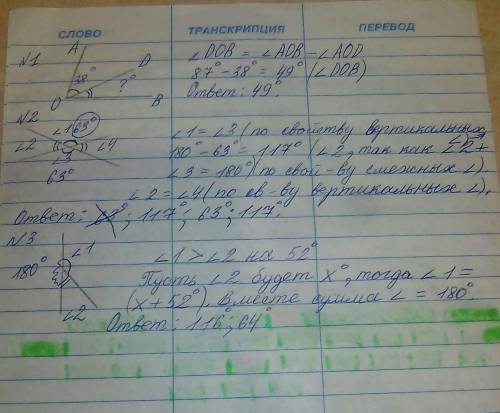 СЛОВО ТРАНСКРИПЦИЯ ПЕРЕВОД
N1 A ∠DOB = ∠AOB - ∠AOD
38° D 87° - 38° = 49° (∠DOB)
?° Ответ: 49°.
O B
N2
∠1 63° ∠1 = ∠3 (по свойству вертикальных
∠2 ∠4 180° - 63° = 117° (∠2, так как ∠2 +
∠3 ∠3 = 180°) (по свой-ву смежных ∠)
63° ∠2 = ∠4 (по св-ву вертикальных ∠).
Ответ: 63°; 117°; 63°; 117°.
N3
∠1 ∠1 > ∠2 на 52°
180° Пусть ∠2 будет x°, тогда ∠1 =
(x + 52°). Вместе сумма ∠ = 180°.
∠2 Ответ: 116°; 64°